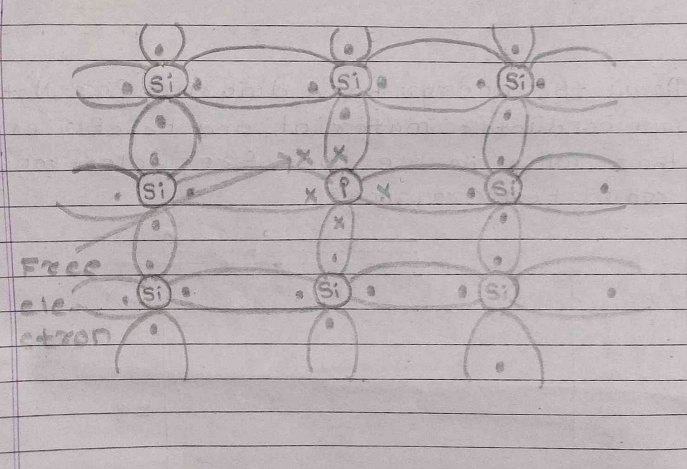 Si Si Si
x x
Si x P x Si
x
Free
ele
ctron
Si Si Si